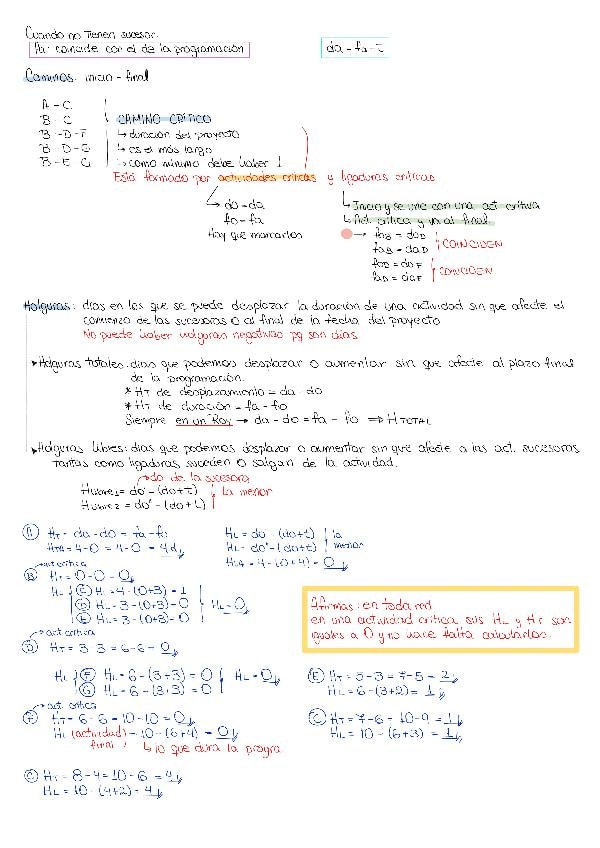 Cuando no tienen sucesor.
fa: coincide con el de la programación
da = fa - t
Caminos: inicio - final
A - C
B - C
B - D - F
B - D - G
B - E - G
CAMINO CRÍTICO
↳ duración del proyecto
↳ es el más largo
↳ como mínimo debe haber 1
Está formado por actividades críticas y ligaduras críticas
↳ do = da
fo = fa
Hay que marcarlos
↳ Inicio y se une con una act. crítica
↳ Act. crítica y va al final
→ foB = doD
faB = daD
COINCIDEN
foD = doF
faD = daF
COINCIDEN
Holguras: días en los que se puede desplazar la duración de una actividad sin que afecte el
comienzo de las sucesoras o al final de la fecha del proyecto
No puede haber holguras negativas pq son días
* Holguras totales: días que podemos desplazar o aumentar sin que afecte al plazo final
de la programación.
* HT de desplazamiento = da - do
* HT de duración = fa - fo
Siempre en un Roy → da - do = fa - fo ⇒ H TOTAL
* Holguras libres: días que podemos desplazar o aumentar sin que afecte a las act. sucesoras
tantas como ligaduras sucedan o salgan de la actividad.
→ do de la sucesora
HLibre1 = do' - (do+t)
HLibre2 = do' - (do+t)
la menor
A HT = da - do = fa - fo
HTA = 4-0 = 4-0 = 4d
HL = do - (do+t)
HL = do' - (do+t)
la menor
HLA = 4 - (0+4) = 0
act crítica
B HT = 0-0 = 0
HL C HL = 4 - (0+3) = 1
D HL = 3 - (0+3) = 0
E HL = 3 - (0+3) = 0
HL = 0
Afirmas: en toda red
en una actividad crítica sus HL y HT son
iguales a 0 y no hace falta calcularlas.
act crítica
D HT = 3-3 = 6-6 = 0
HL F HL = 6 - (3+3) = 0
G HL = 6 - (3+3) = 0
HL = 0
E HT = 5-3 = 7-5 = 2
HL = 6 - (3+2) = 1
act. crítica
F HT = 6-6 = 10-10 = 0
HL (actividad final) = 10 - (6+4) = 0
↳ lo que dura la progra
G HT = 7-6 = 10-9 = 1
HL = 10 - (6+3) = 1
C HT = 8-4 = 10-6 = 4
HL = 10 - (4+2) = 4